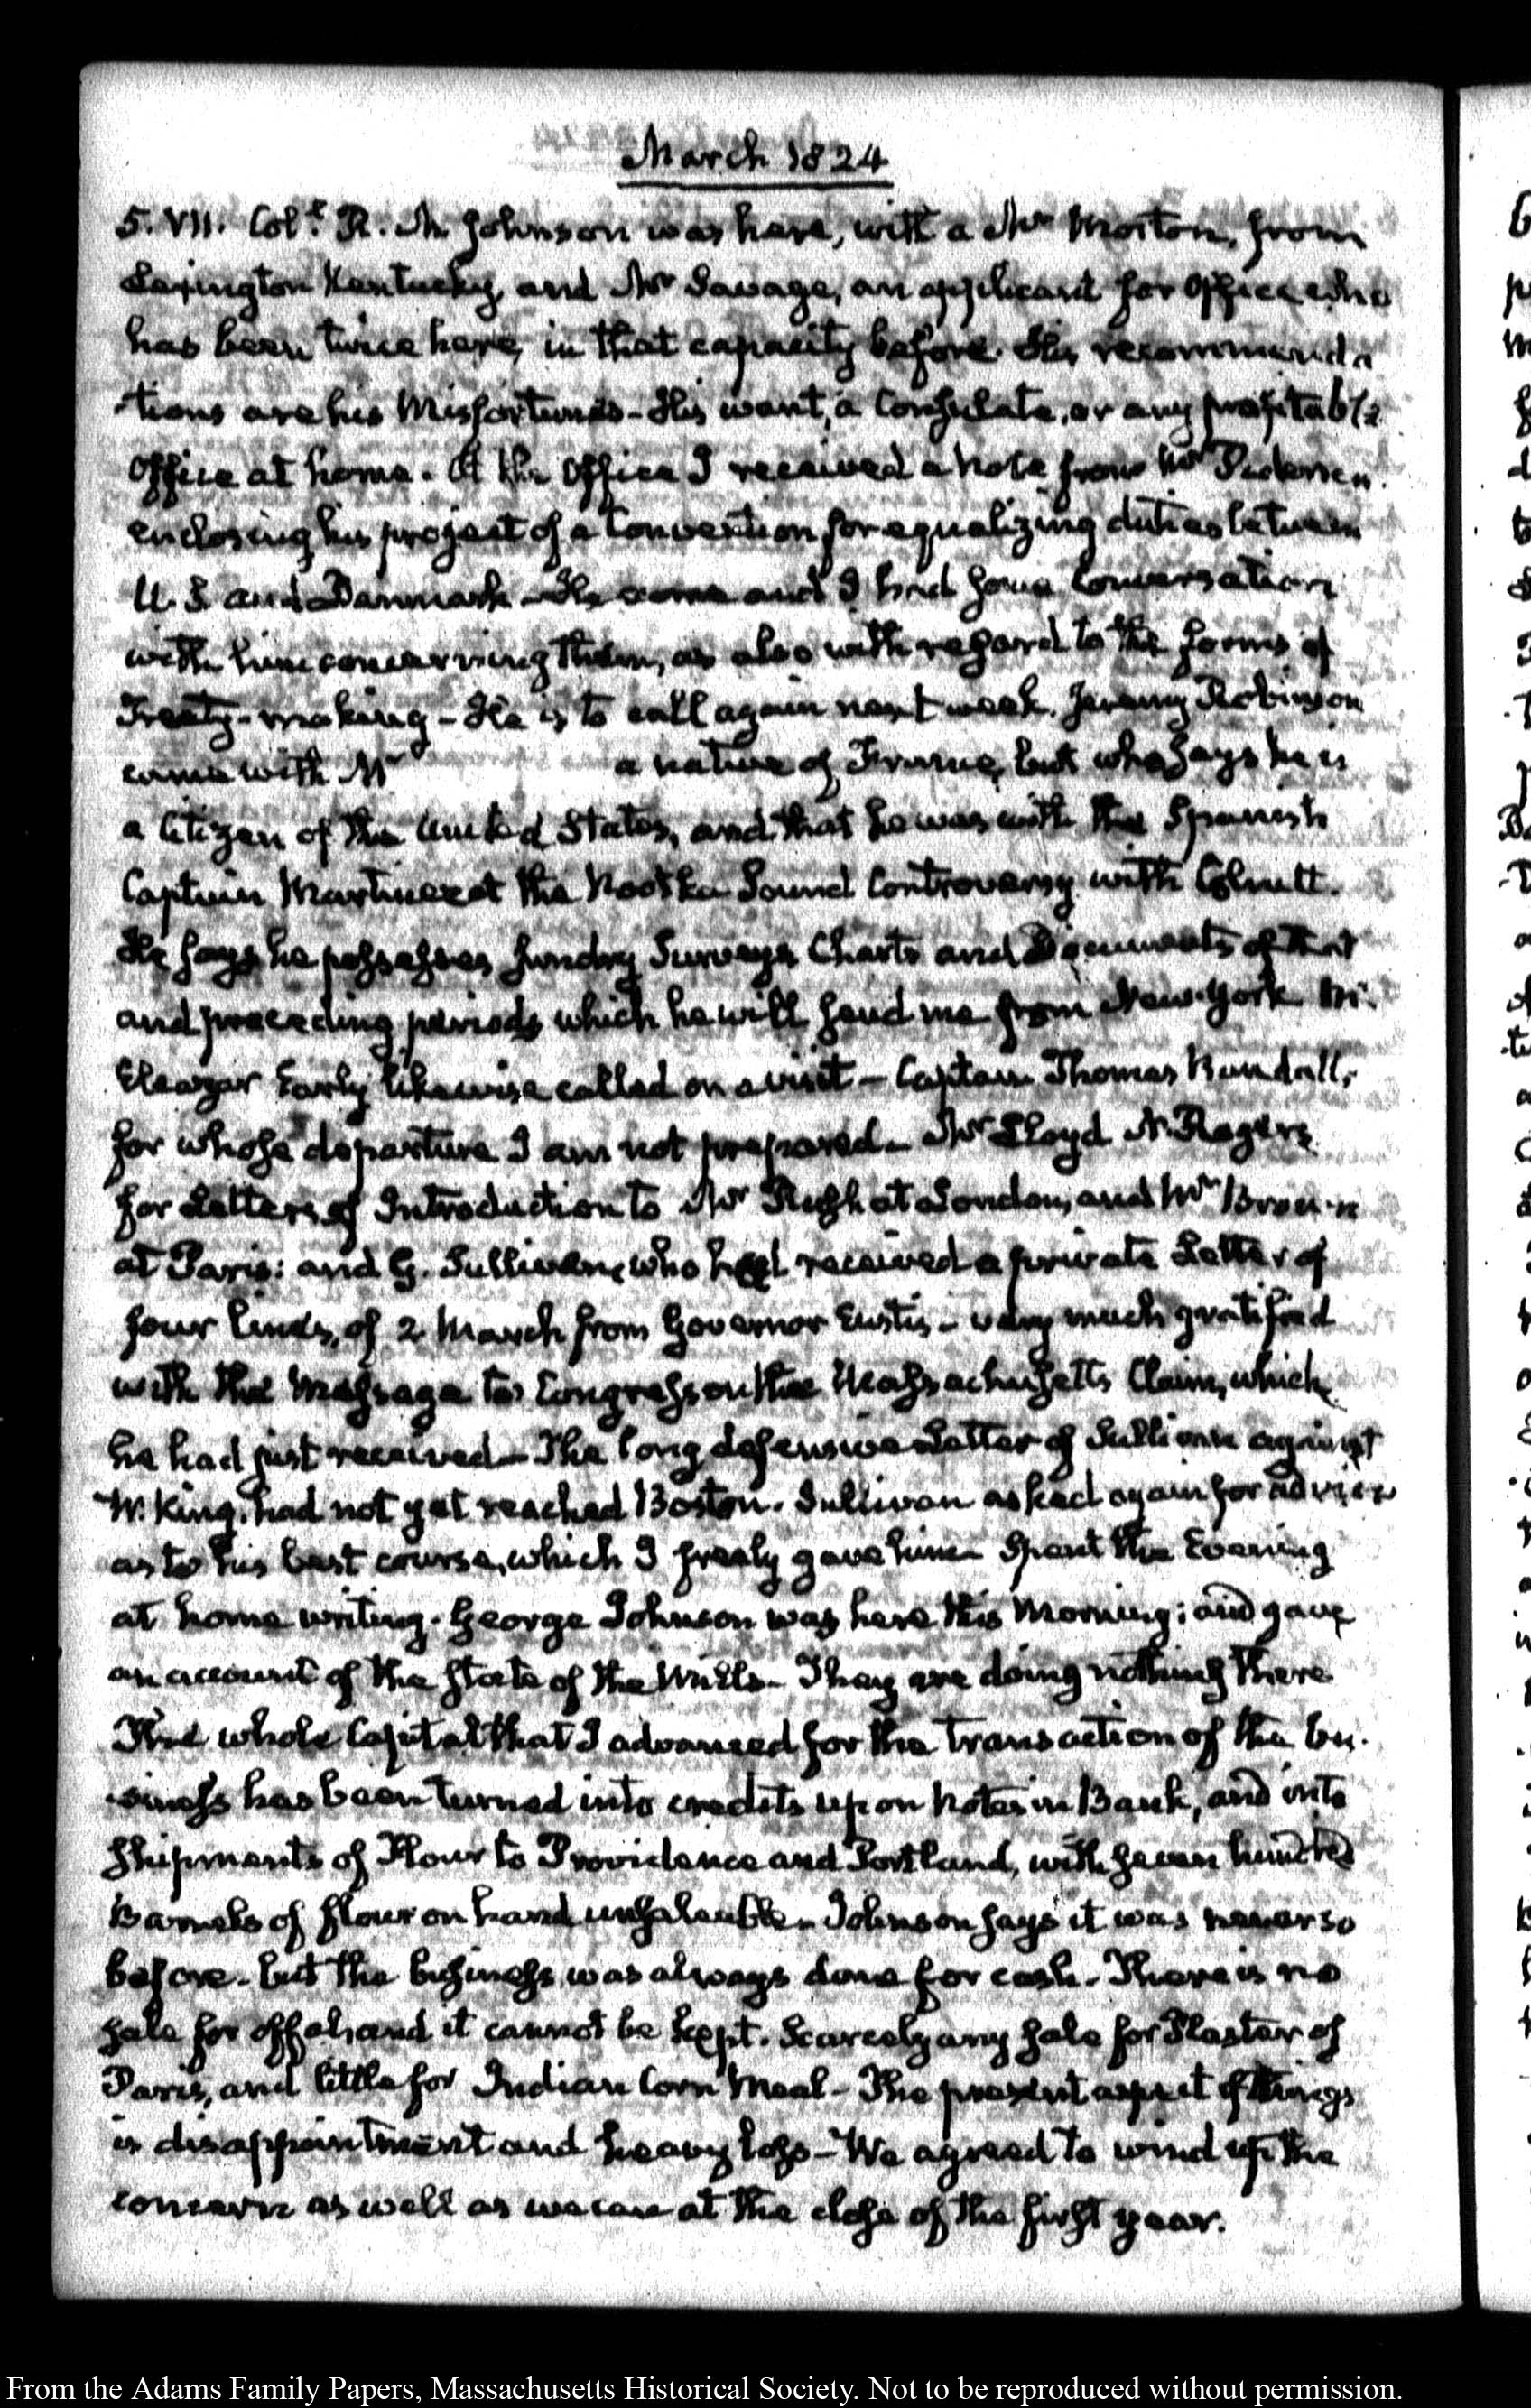 March 1824
5. VII. Coll. R. M. Johnson was here, with a Mr Morton, from
Lexington Kentucky, and Mr Savage, an applicant for Office who
has been twice here, in that capacity before. His recommenda
-tions are his Misfortunes - His want, a Consulate, or any profitable
Office at home. At the Office I received a Note from Mr Pedersen
enclosing his project of a Convention for equalizing duties between
U.S. and Denmark - He came and I had some Conversation
with him concerning them, as also with regard to the forms of
Treaty-making - He is to call again next week. Jeremy Robinson
came with Mr a native of France, but who says he is
a Citizen of the United States, and that he was with the Spanish
Captain Martinez at the Nootka Sound Controversy with Colnett.
He says he possesses sundry Surveys Charts and Documents of that
and preceding periods which he will send me from New-York Mr
Eleazar Early likewise called on a visit - Captain Thomas Randall,
for whose departure I am not prepared - Mr Lloyd N. Rogers
for Letters of Introduction to Mr Rush at London, and Mr Brown
at Paris: and G. Sullivan, who had received a private Letter of
four lines, of 2 March from Governor Eustis - very much gratified
with the Message to Congress on the Massachusetts Claim, which
he had just received - The long defensive Letter of Sullivan against
W. King, had not yet reached Boston. Sullivan asked again for advice
as to his best course, which I freely gave him - Spent the Evening
at home writing. George Johnson was here this Morning: and gave
an account of the state of the Mills - They are doing nothing there
The whole Capital that I advanced for the transaction of the bu-
-siness has been turned into credits upon Notes in Bank, and into
shipments of Flour to Providence and Portland, with seven hundred
Barrels of flour on hand unsaleable - Johnson says it was never so
before - but the business was always done for cash - There is no
sale for offal, and it cannot be kept. Scarcely any sale for Plaster of
Paris, and little for Indian Corn Meal - The present aspect of things
is disappointment and heavy loss - We agreed to wind up the
concern as well as we can at the close of the first year.
From the Adams Family Papers, Massachusetts Historical Society. Not to be reproduced without permission.